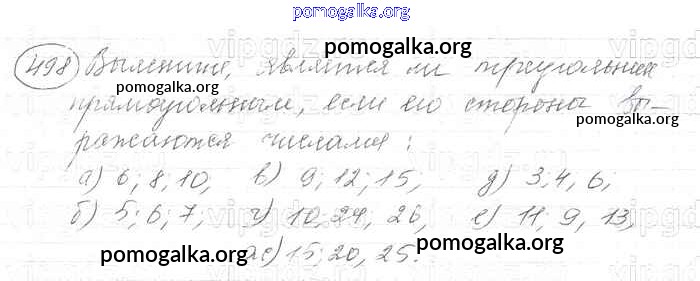 pomogalka.org
498 Выясните, является ли треугольник
pomogalka.org
прямоугольным, если его стороны вы-
pomogalka.org
pomogalka.org
ражаются числами:
а) 6; 8; 10, в) 9; 12; 15, д) 3, 4, 6,
pomogalka.org
pomogalka.org
б) 5; 6; 7; г) 10, 24, 26, е) 11, 9, 13,
ж) 15; 20, 25.
pomogalka.org
pomogalka.org